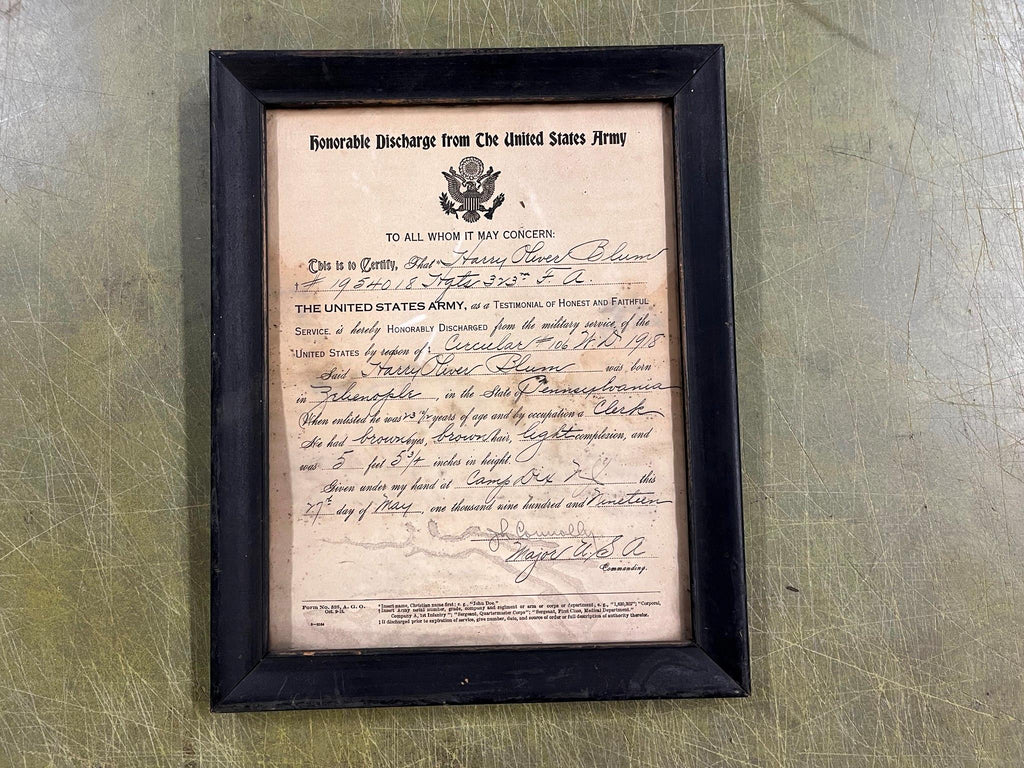 Honorable Discharge from The United States Army
TO ALL WHOM IT MAY CONCERN:
This is to Certify, That * Harry Oliver Blum
† # 1954018 Hqts 323rd F. A.
THE UNITED STATES ARMY, as a TESTIMONIAL OF HONEST AND FAITHFUL
SERVICE, is hereby HONORABLY DISCHARGED from the military service of the
UNITED STATES by reason of ‡ Circular # 106 W. D. 1918
Said Harry Oliver Blum was born
in Zelienople, in the State of Pennsylvania
When enlisted he was 23 years of age and by occupation a Clerk
He had brown eyes, brown hair, light complexion, and
was 5 feet 5 3/4 inches in height.
Given under my hand at Camp Dix N J this
27th day of May, one thousand nine hundred and Nineteen
Connolly
Major U S A
Commanding.
Form No. 525, A. G. O.
Oct. 9-18.
*Insert name, Christian name first; e. g., "John Doe."
†Insert Army serial number, grade, company and regiment or arm or corps or department; e. g., "1,620,302"; "Corporal,
Company A, 1st Infantry"; "Sergeant, Quartermaster Corps"; "Sergeant, First Class, Medical Department."
‡If discharged prior to expiration of service, give number, date, and source of order or full description of authority therefor.